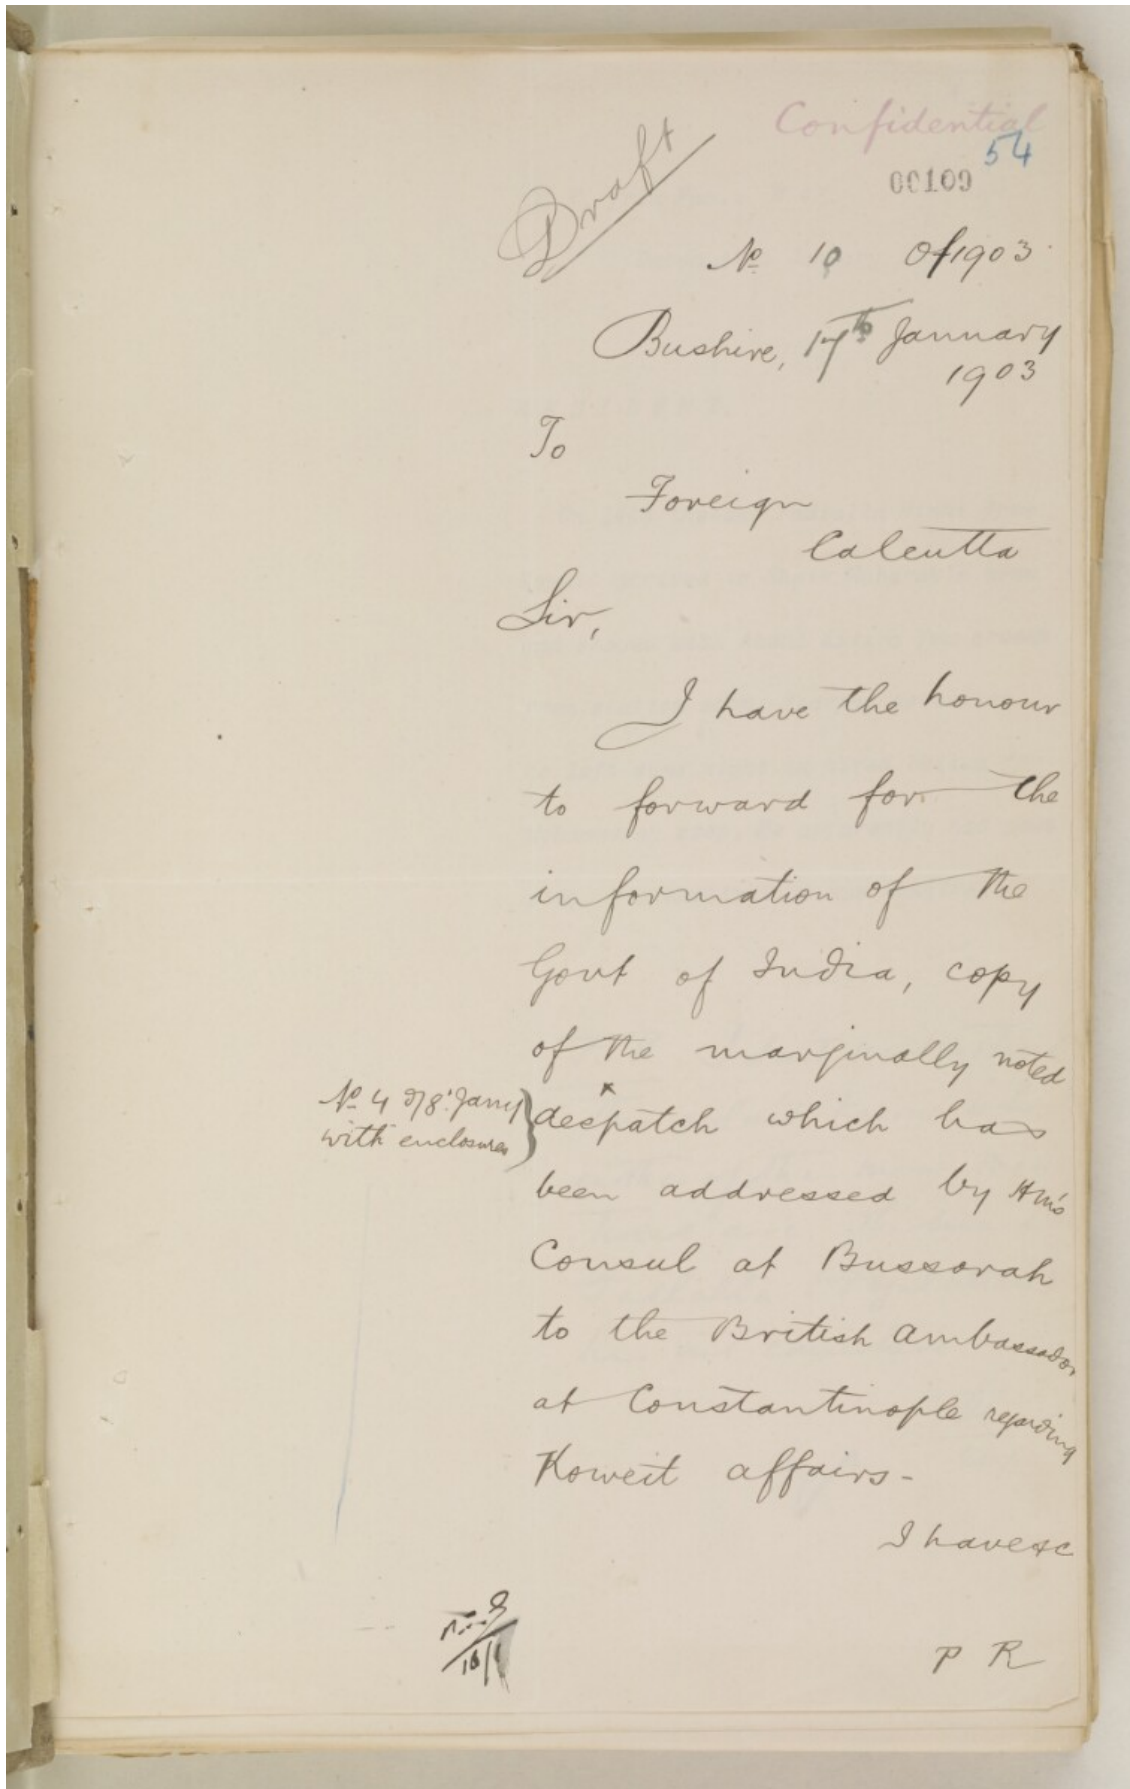 Confidential
54
00109
Draft
No 10 Of 1903
Bushire, 17th January
1903
To
Foreign
Calcutta
Sir,
I have the honour
to forward for the
information of the
Govt of India, copy
of the marginally noted
No 4 of 8 Jany
with enclosures
despatch which has
been addressed by HM's
Consul at Bussorah
to the British Ambassador
at Constantinople regarding
Koweit affairs -
I have &c
16/1
P R